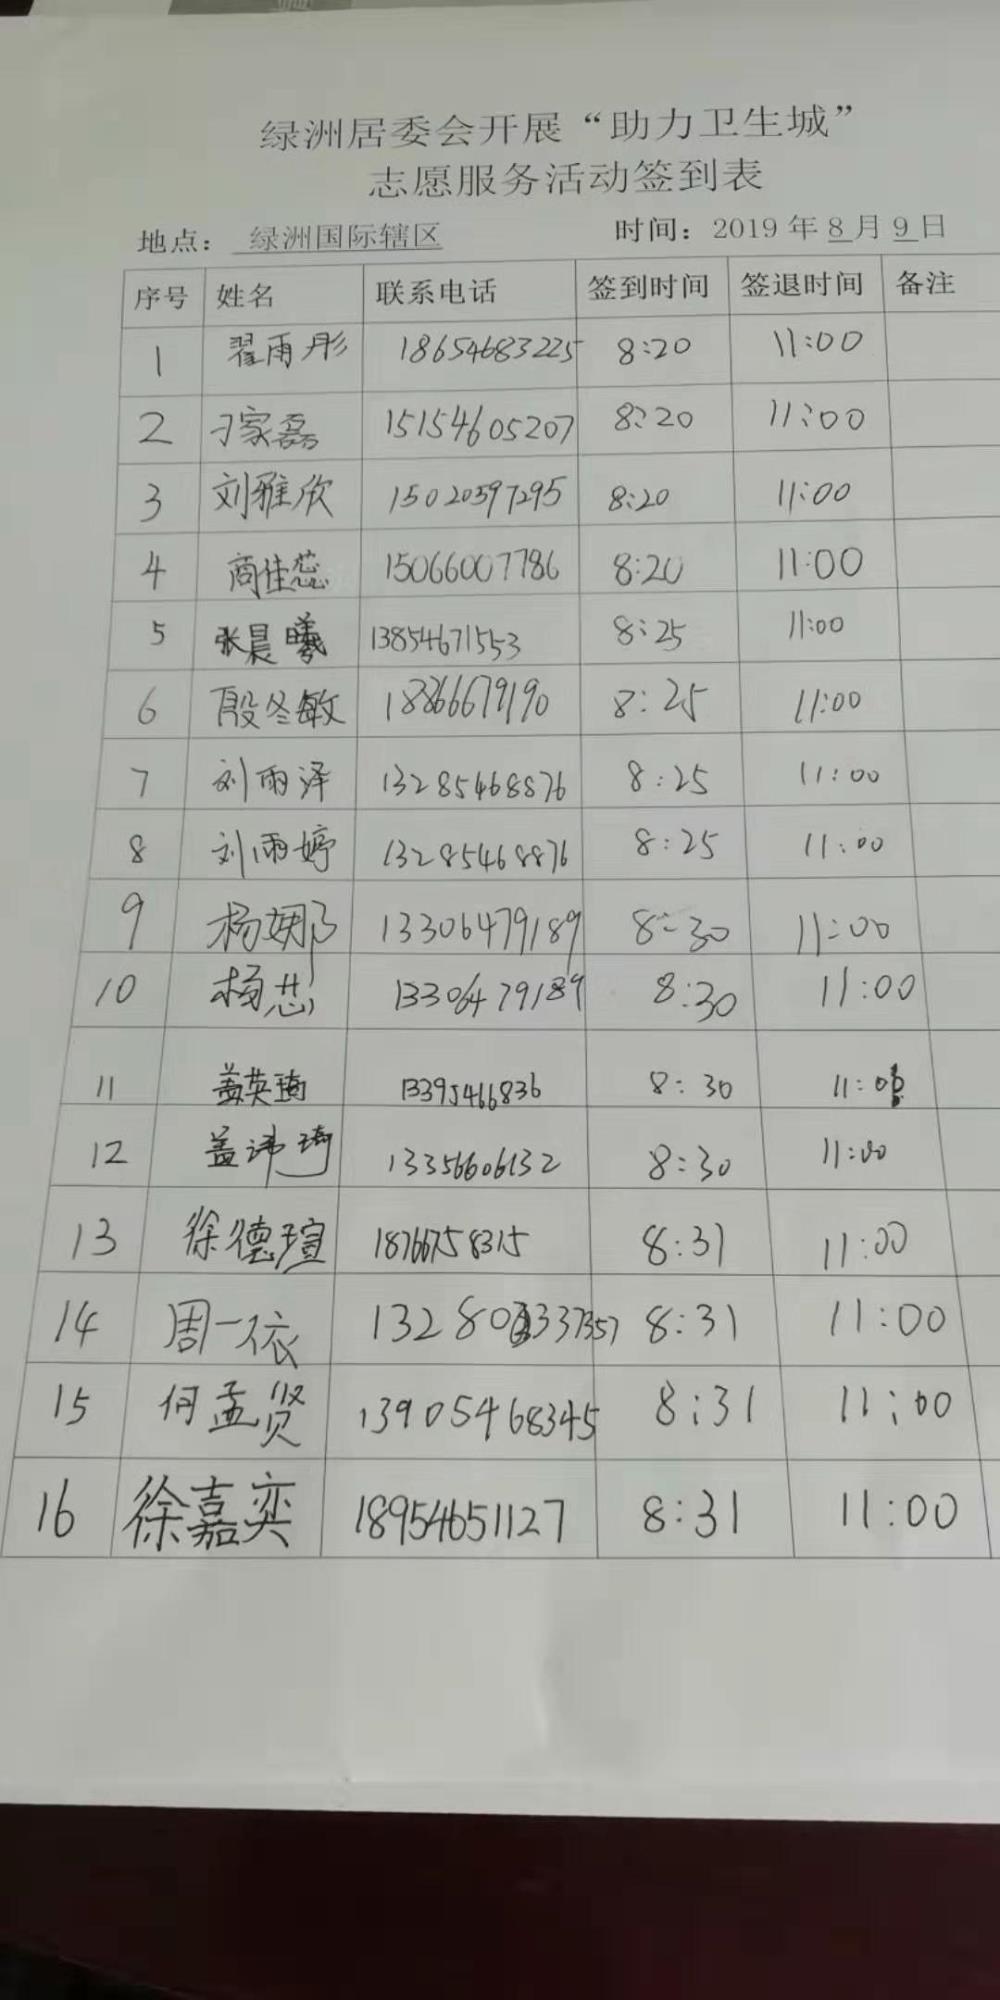 绿洲居委会开展“助力卫生城”
志愿服务活动签到表
地点： 绿洲国际辖区 时间：2019 年 8 月 9 日
序号 姓名 联系电话 签到时间 签退时间 备注
1 翟雨彤 18654683225 8:20 11:00
2 刁家磊 15154605207 8:20 11:00
3 刘雅欣 15020597295 8:20 11:00
4 商佳蕊 15066007786 8:20 11:00
5 张晨曦 13854671553 8:25 11:00
6 殷冬敏 18866679190 8:25 11:00
7 刘雨泽 13285468876 8:25 11:00
8 刘雨婷 13285468876 8:25 11:00
9 杨娜 13306479189 8:30 11:00
10 杨芯 13306479189 8:30 11:00
11 盖英瑜 13395466836 8:30 11:00
12 盖沛琦 13356606132 8:30 11:00
13 徐德瑄 18766758315 8:31 11:00
14 周一依 8:31 11:00
15 何孟贤 13905468345 8:31 11:00
16 徐嘉奕 18954651127 8:31 11:00